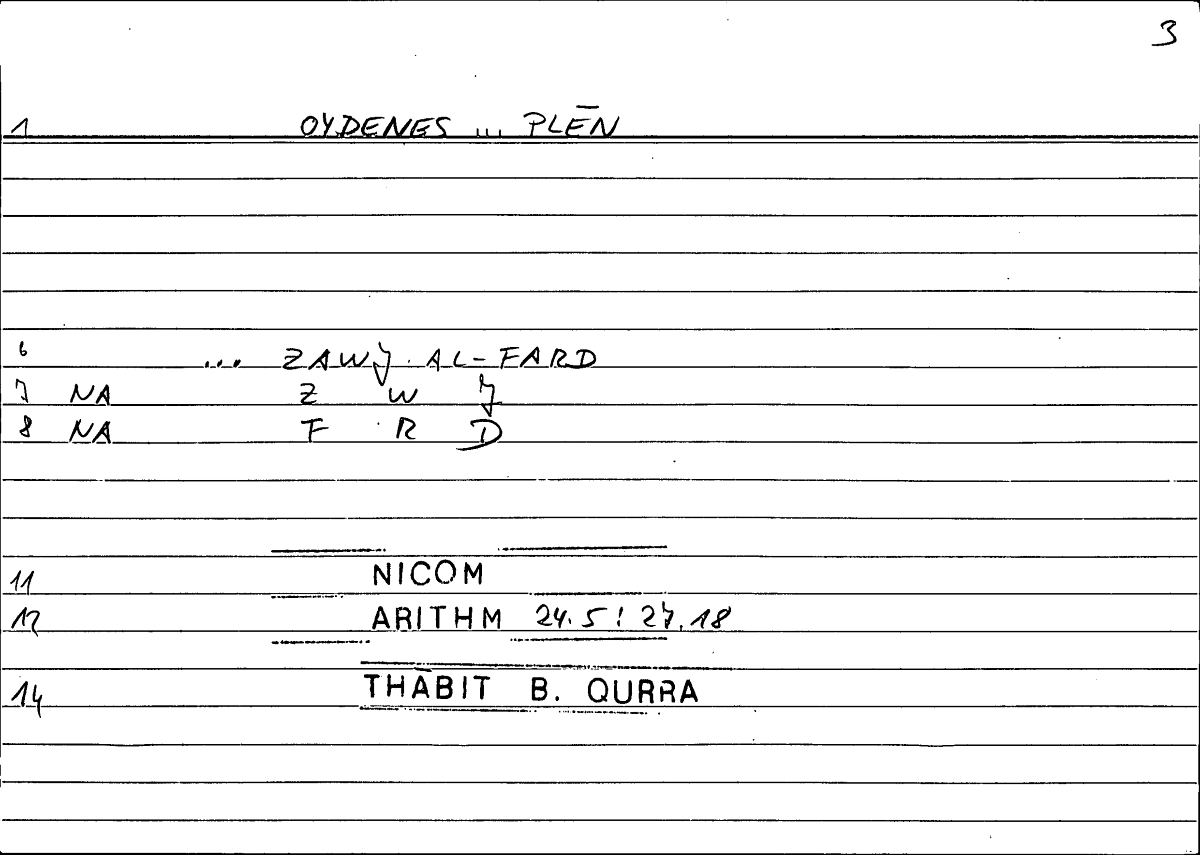 3
1 OYDENES ... PLĒN
6 ... ZAWJ AL-FARD
7 NA Z W J
8 NA F R D
11 NICOM
12 ARITHM 24.5 ! 27.18
14 THĀBIT B. QURRA